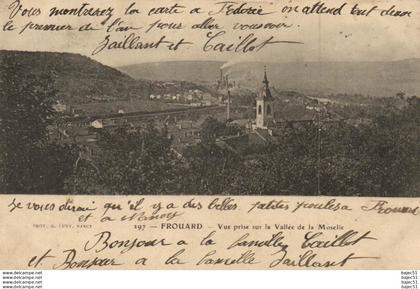 Vous montrerez la carte a Fedorie on attend tout deux
le premier de l'an pour aller vous voir
Jaillant et Caillot
Je vous dirai qu'il y a des belles petites poules a Frouard
et a Nancy
PHOT. G. CUNY, NANCY
197 - FROUARD. - Vue prise sur la Vallée de la Moselle
Bonjour a la famille Caillot
et Bonjour a la famille Jaillant
delcampe.net